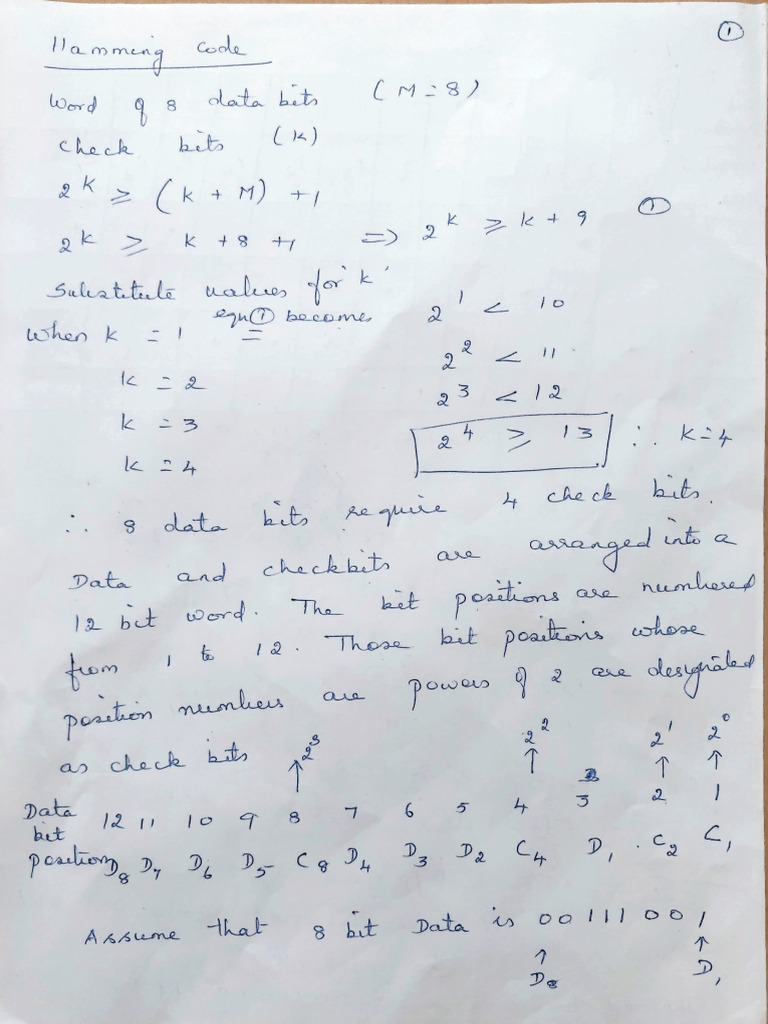 ①
Hamming code
Word of 8 data bits (M=8)
check bits (K)
2^K ≥ (K + M) + 1
2^K ≥ K + 8 + 1 ⇒ 2^K ≥ K + 9 ①
Substitute values for 'K'
When K = 1 equn ① becomes 2^1 < 10
K = 2 2^2 < 11
K = 3 2^3 < 12
K = 4 2^4 ≥ 13 ∴ K=4
∴ 8 data bits require 4 check bits.
Data and checkbits are arranged into a
12 bit word. The bit positions are numbered
from 1 to 12. Those bit positions whose
position numbers are powers of 2 are designated
as check bits 2^3 2^2 2^1 2^0
↑ ↑ ↑ ↑
Data bit position 12 11 10 9 8 7 6 5 4 3 2 1
D8 D7 D6 D5 C8 D4 D3 D2 C4 D1 C2 C1
Assume that 8 bit Data is 00111001
↑ ↑
D8 D1